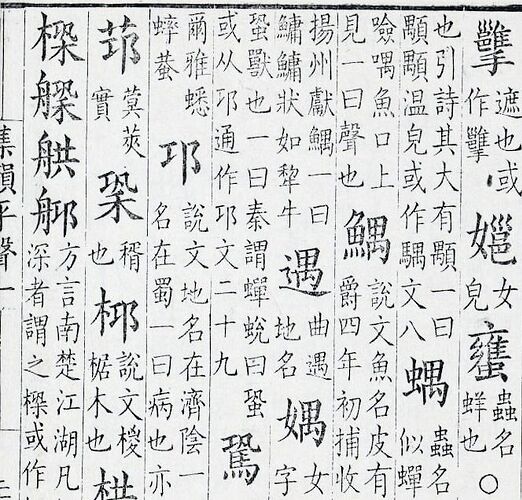 遮也或
作
女
皃
蟲名
蛘也
○
也引詩其大有顒一曰
顒顒温皃或作䮒文八
蝺
蟲名
似蟬
噞喁魚口上
見一曰聲也
鰅
說文魚名皮有
爵四年初捕收
揚州獻鰅一曰
鱅鱅狀如犂牛
遇
曲遇
地名
媀
女
字
蛩獸也一曰秦謂蟬蛻曰蛩
或从邛通作邛文二十九
爾雅蟋
蟀蛬
邛
說文地名在濟陰一
名在蜀一曰病也亦
蓂莢
實
稽
也
說文椶
椐木也
栱
舼
方言南楚江湖凡
深者謂之或作
集韻平聲一